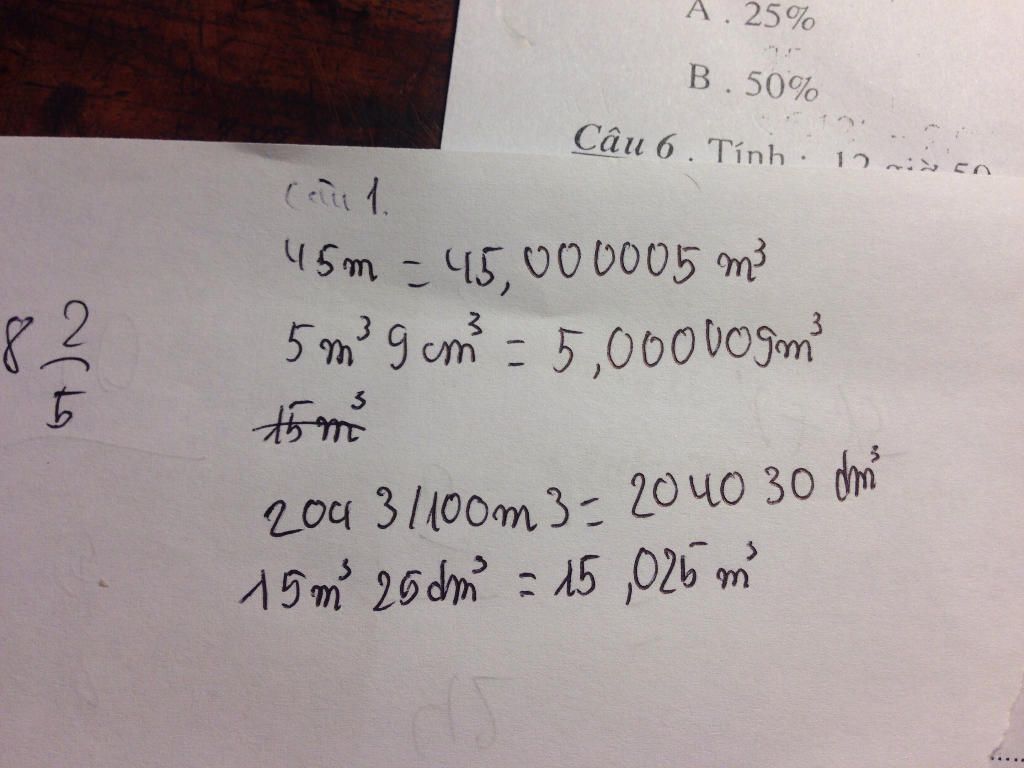 A . 25%
B . 50%
Câu 6 . Tính : 12 giờ 50
Câu 1.
45m = 45,000005 m³
8 2/5
5m³ 9cm³ = 5,000009m³
15m³
204 3/100m3 = 204030 dm³
15m³ 25dm³ = 15,025 m³